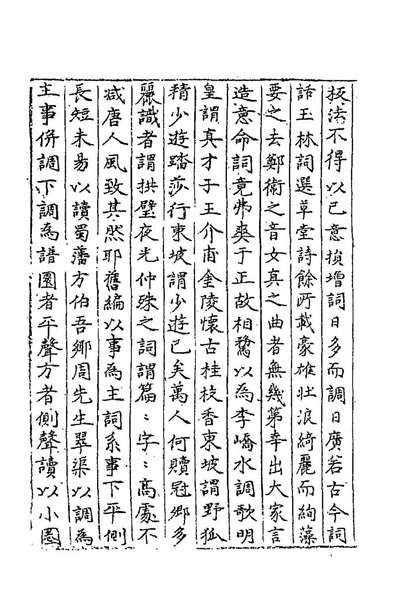 扳法不得以己意損增詞日多而調日廣若古今詞
話玉林詞選草堂詩餘所載豪雄壮浪綺麗而絢藻
要之去鄭衛之音女真之曲者無幾第幸出大家言
造意命詞竟弗㢡于正故相鶩以為李嶠水調歌明
皇謂真才子王介甫金陵懷古桂枝香東坡謂野狐
精少遊踏莎行東坡謂少遊已矣萬人何贖冠鄉多
麗識者謂拱璧夜光仲殊之詞謂篇〻字〻高處不
减唐人風致其然耶舊編以事為主詞系事下平側
長短未易以讀蜀藩方伯吾鄉周先生翠渠以調為
主事併調下調為譜圈者平聲方者側聲讀以小圈